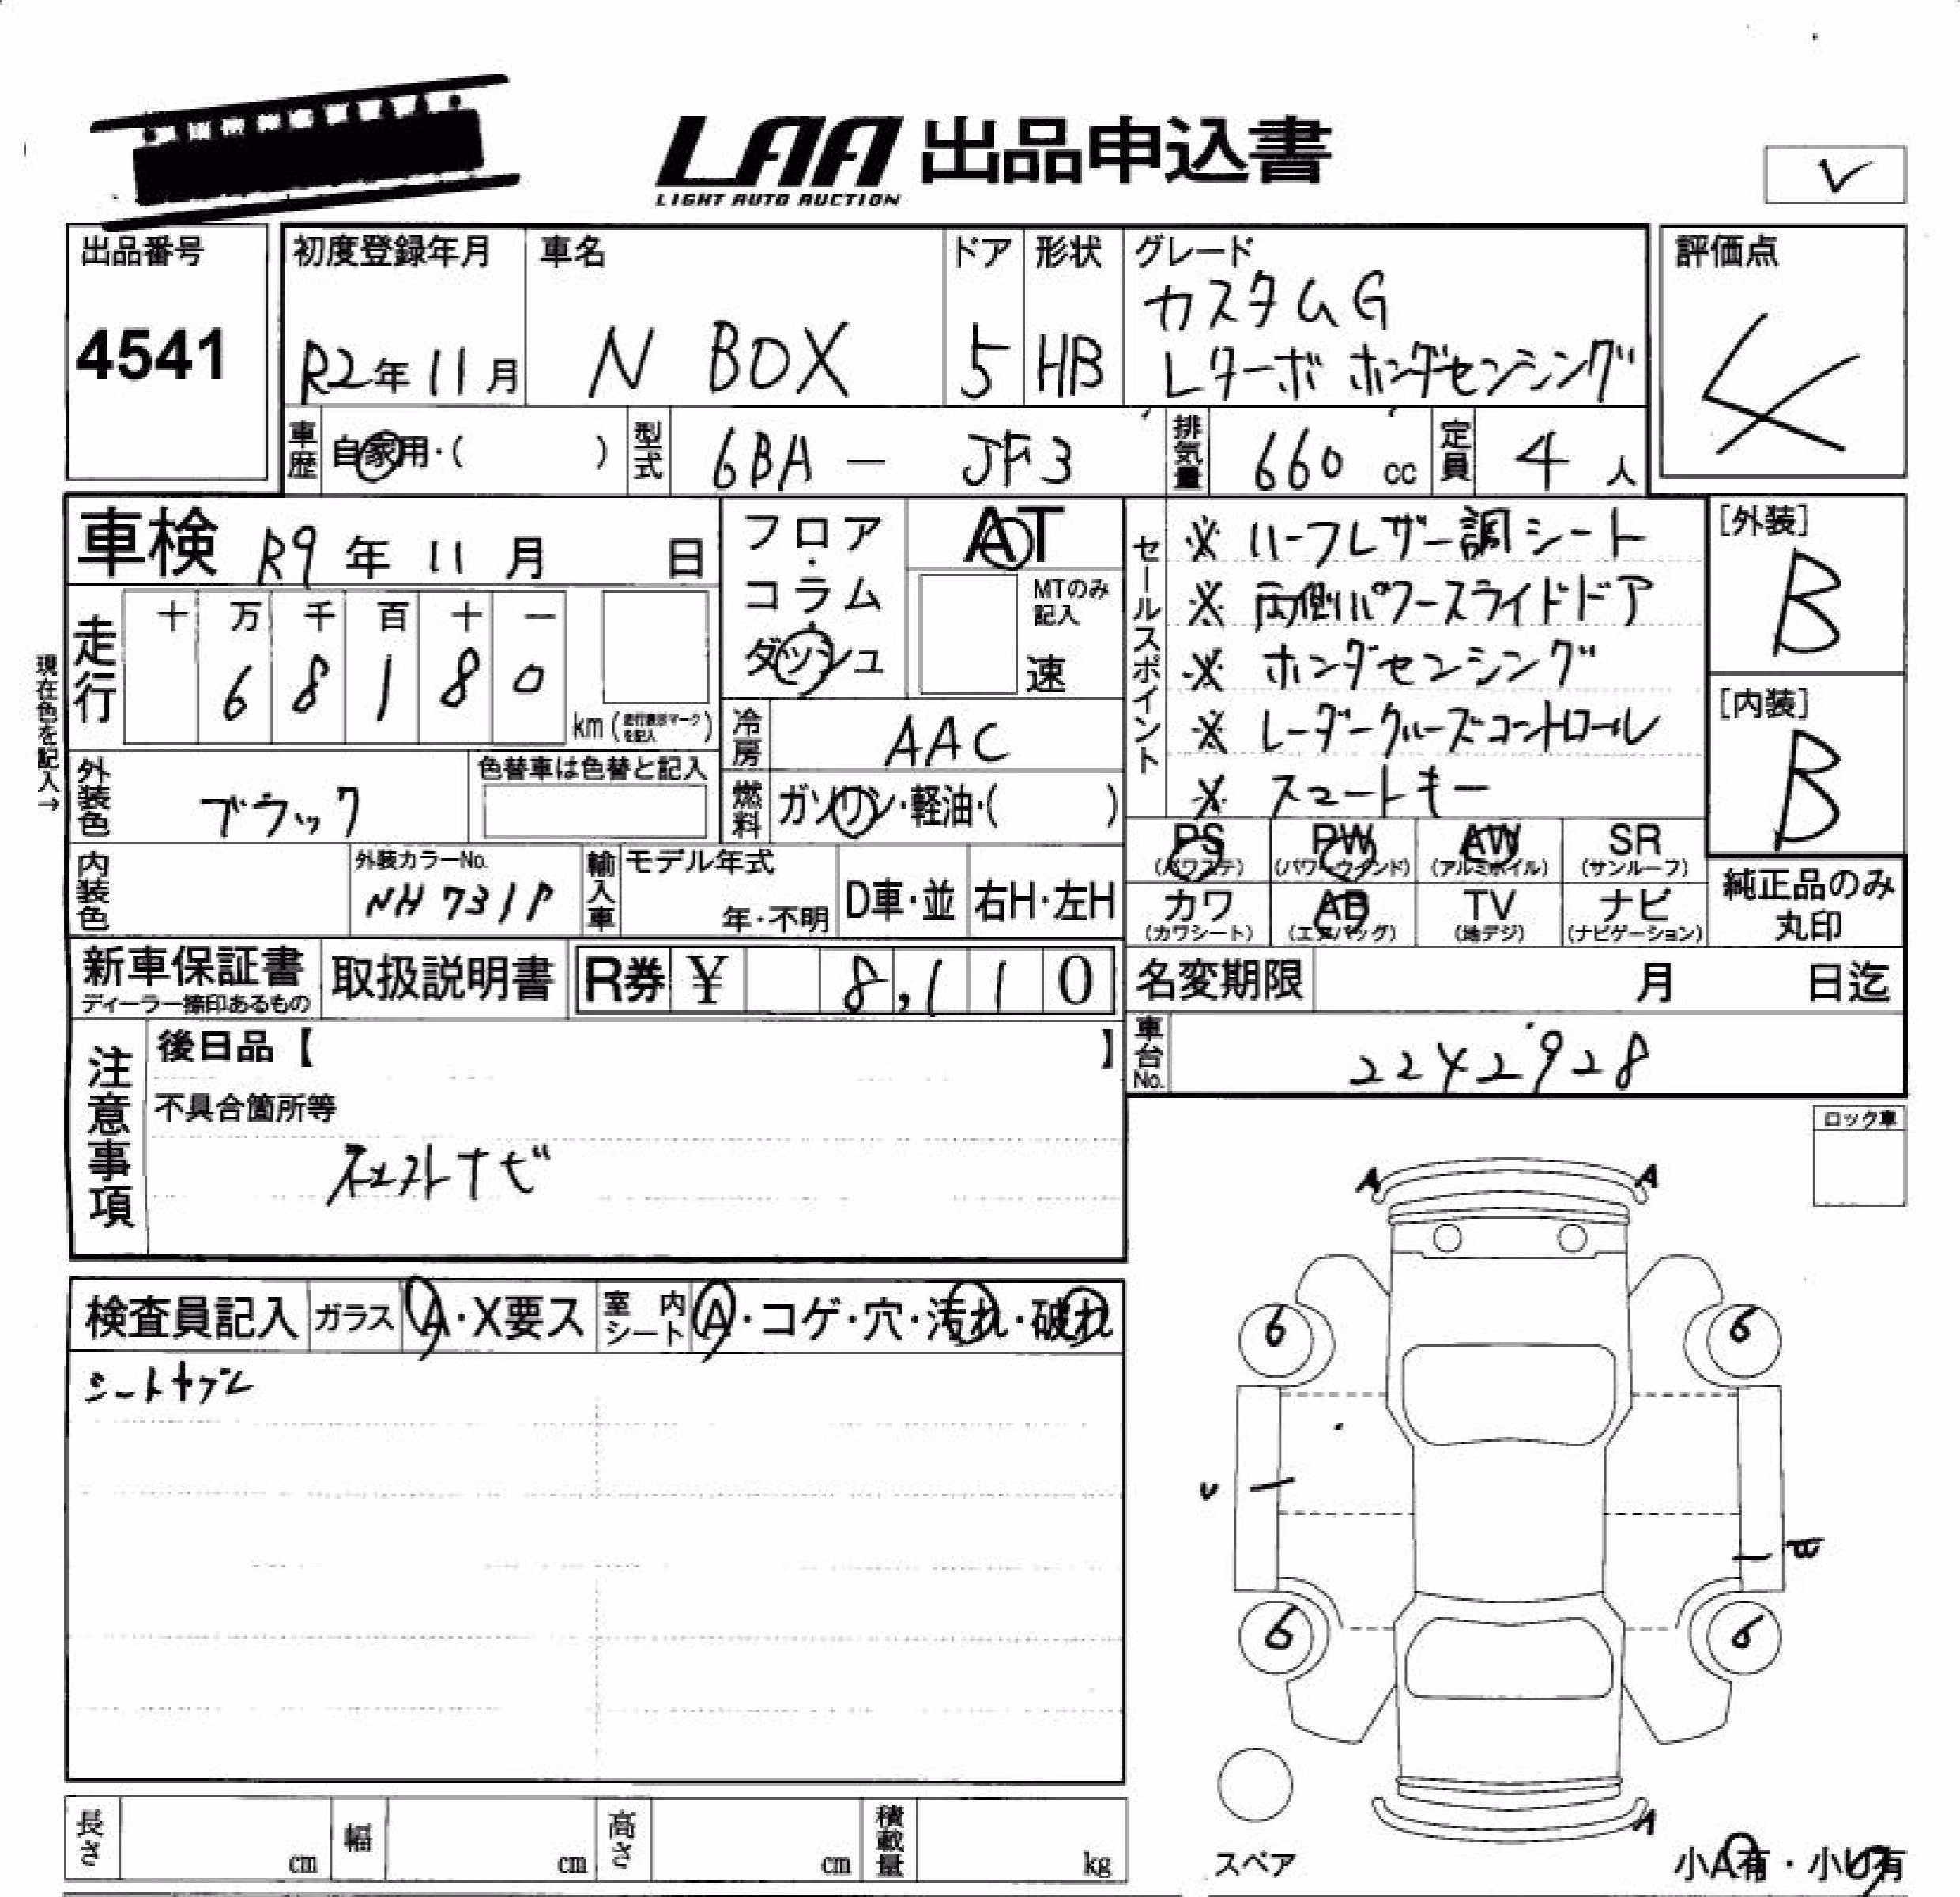 LAA 出品申込書
LIGHT AUTO AUCTION
出品番号
4541
初度登録年月
R2年11月
車名
N BOX
ドア
5
形状
HB
グレード
カスタムG
Lターボ ホンダセンシング
評価点
4
車歴
自家用・( )
型式
6BA - JF3
排気量
660 cc
定員
4 人
車検 R9年 11月 日
現在色を記入→
走行
十 万 千 百 十 一
6 8 1 8 0
km (走行表示マークを記入)
フロア・コラム・ダッシュ
AT
MTのみ記入
速
冷房
AAC
燃料
ガソリン・軽油・( )
セールスポイント
※ ハーフレザー調シート
※ 両側パワースライドドア
※ ホンダセンシング
※ レーダークルーズコントロール
※ スマートキー
[外装]
B
[内装]
B
外装色
ブラック
色替車は色替と記入
内装色
外装カラーNo.
NH731P
輸入車
モデル年式
年・不明
D車・並
右H・左H
PS
(パワステ)
PW
(パワーウインド)
AW
(アルミホイル)
SR
(サンルーフ)
カワ
(カワシート)
AB
(エアバッグ)
TV
(地デジ)
ナビ
(ナビゲーション)
純正品のみ
丸印
新車保証書
ディーラー捺印あるもの
取扱説明書
R券 ¥ 8,110
名変期限 月 日迄
車台No.
2242928
注意事項
後日品【 】
不具合箇所等
ネクストナビ
ロック車
検査員記入
ガラス
A・X要ス
室内シート
A・コゲ・穴・汚れ・破れ
シートヤブレ
A A
6 6
6 6
A
スペア
小A有・小U有
長さ cm
幅 cm
高さ cm
積載量 kg